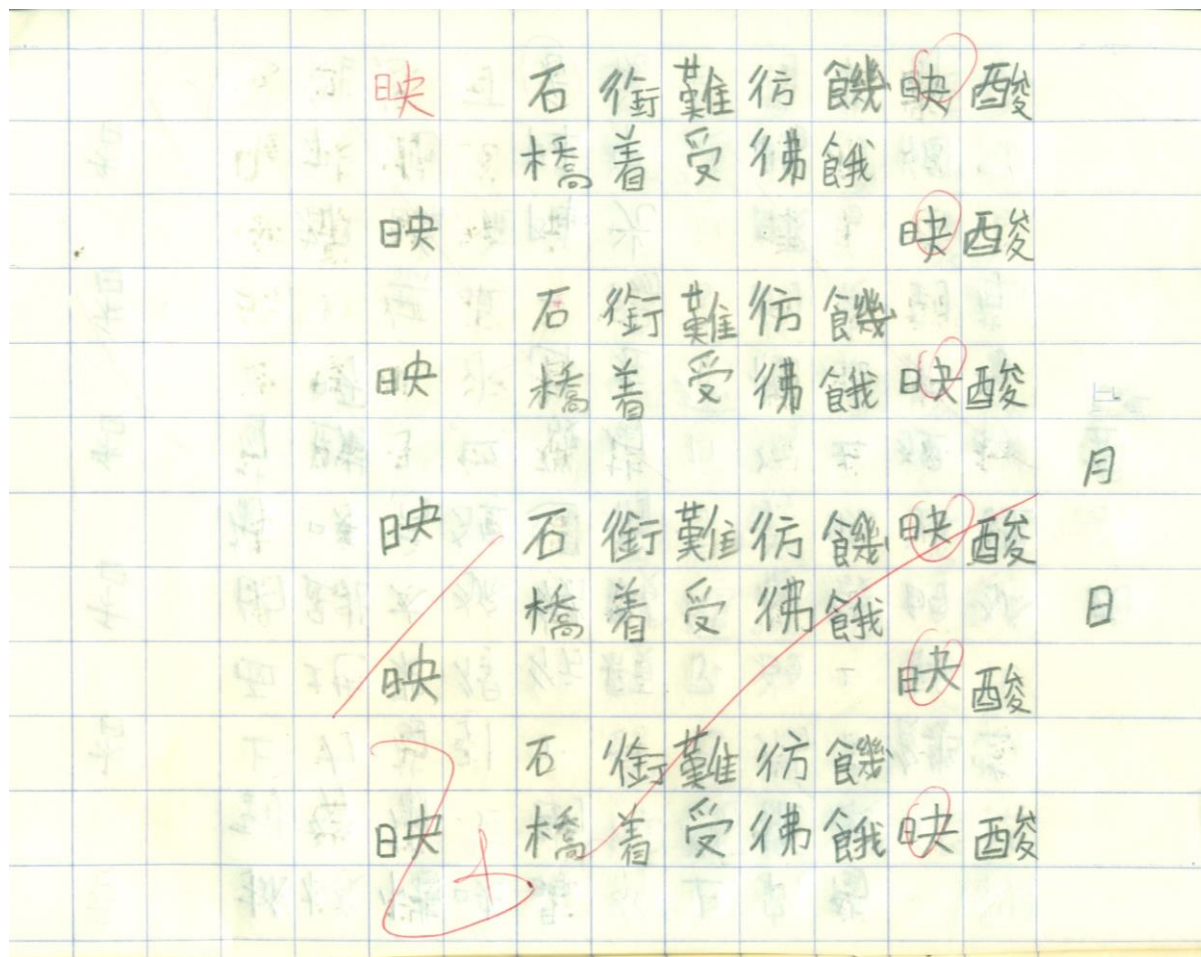 月日
酸酸酸酸酸酸
饑餓饑餓饑餓饑餓
彷彿彷彿彷彿彷彿
難受難受難受難受
銜着銜着銜着銜着
石橋石橋石橋石橋
映映映映映映